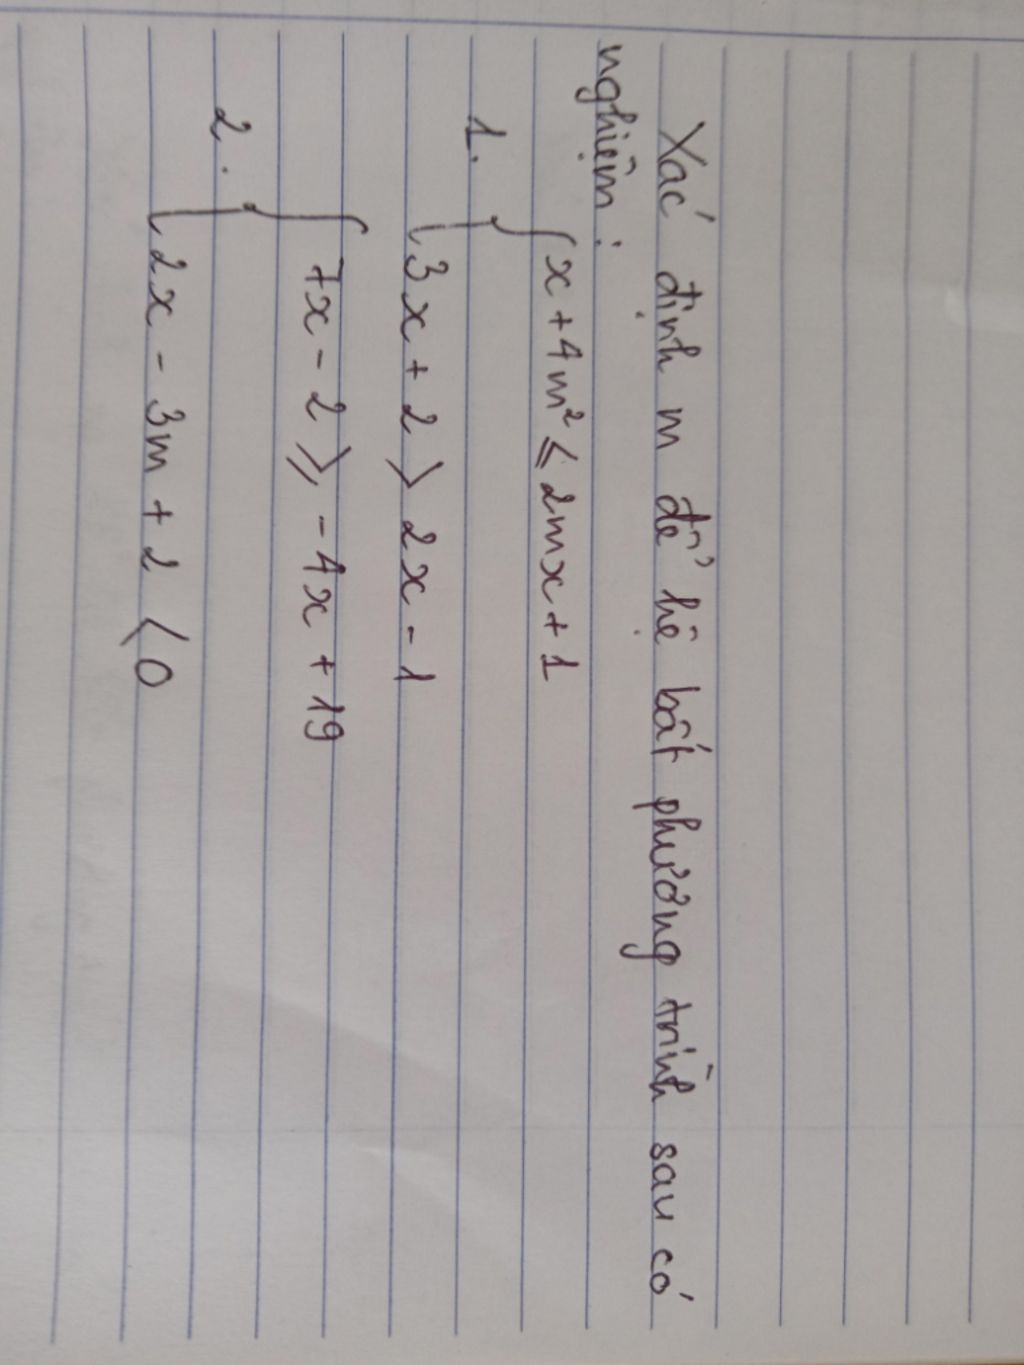 Xác định m để hệ bất phương trình sau có
nghiệm:
1. { x + 4m² ≤ 2mx + 1
3x + 2 > 2x - 1
2. { 7x - 2 ≥ -4x + 19
2x - 3m + 2 < 0